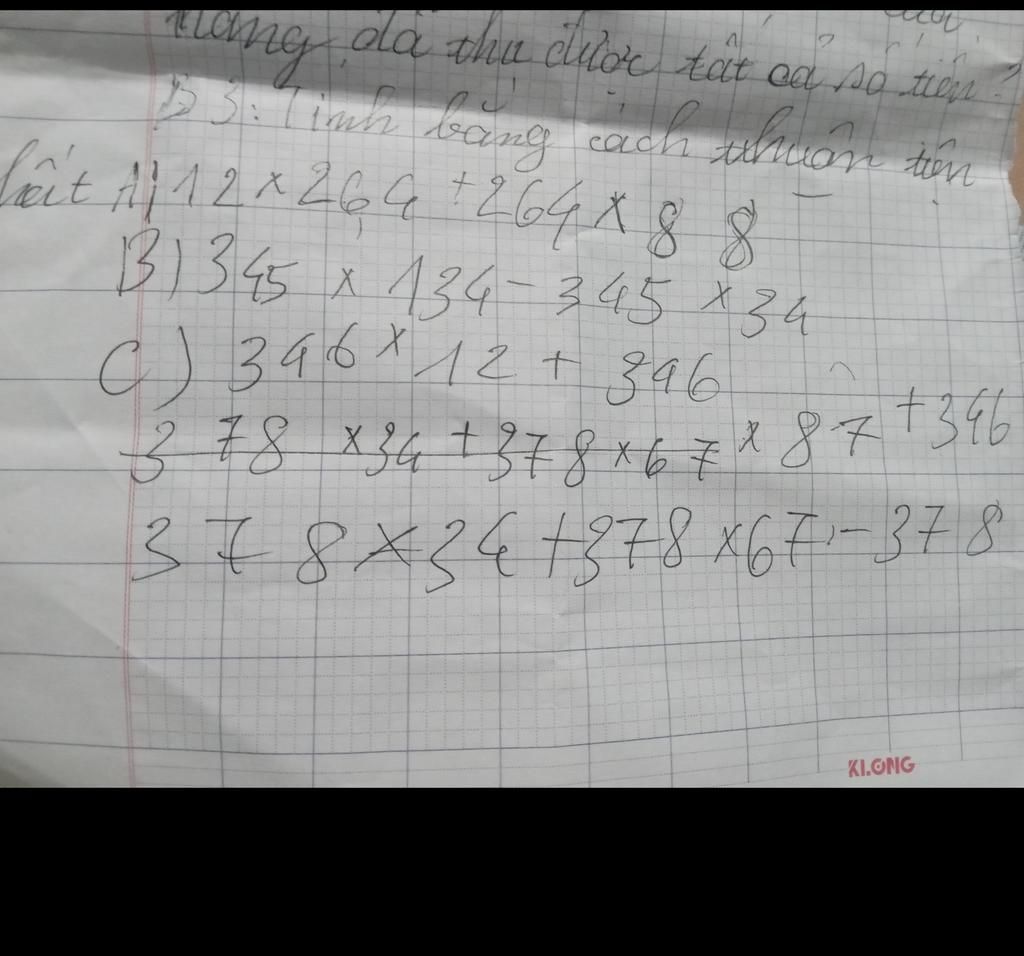 đã thu được tất cả số tiền?
B3: Tính bằng cách thuận tiện
hất A) 12 × 264 + 264 × 88
B) 345 × 134 - 345 × 34
C) 346 × 12 + 346
378 × 34 + 378 × 67 × 87 + 346
378 × 34 + 378 × 67 - 378
KLONG